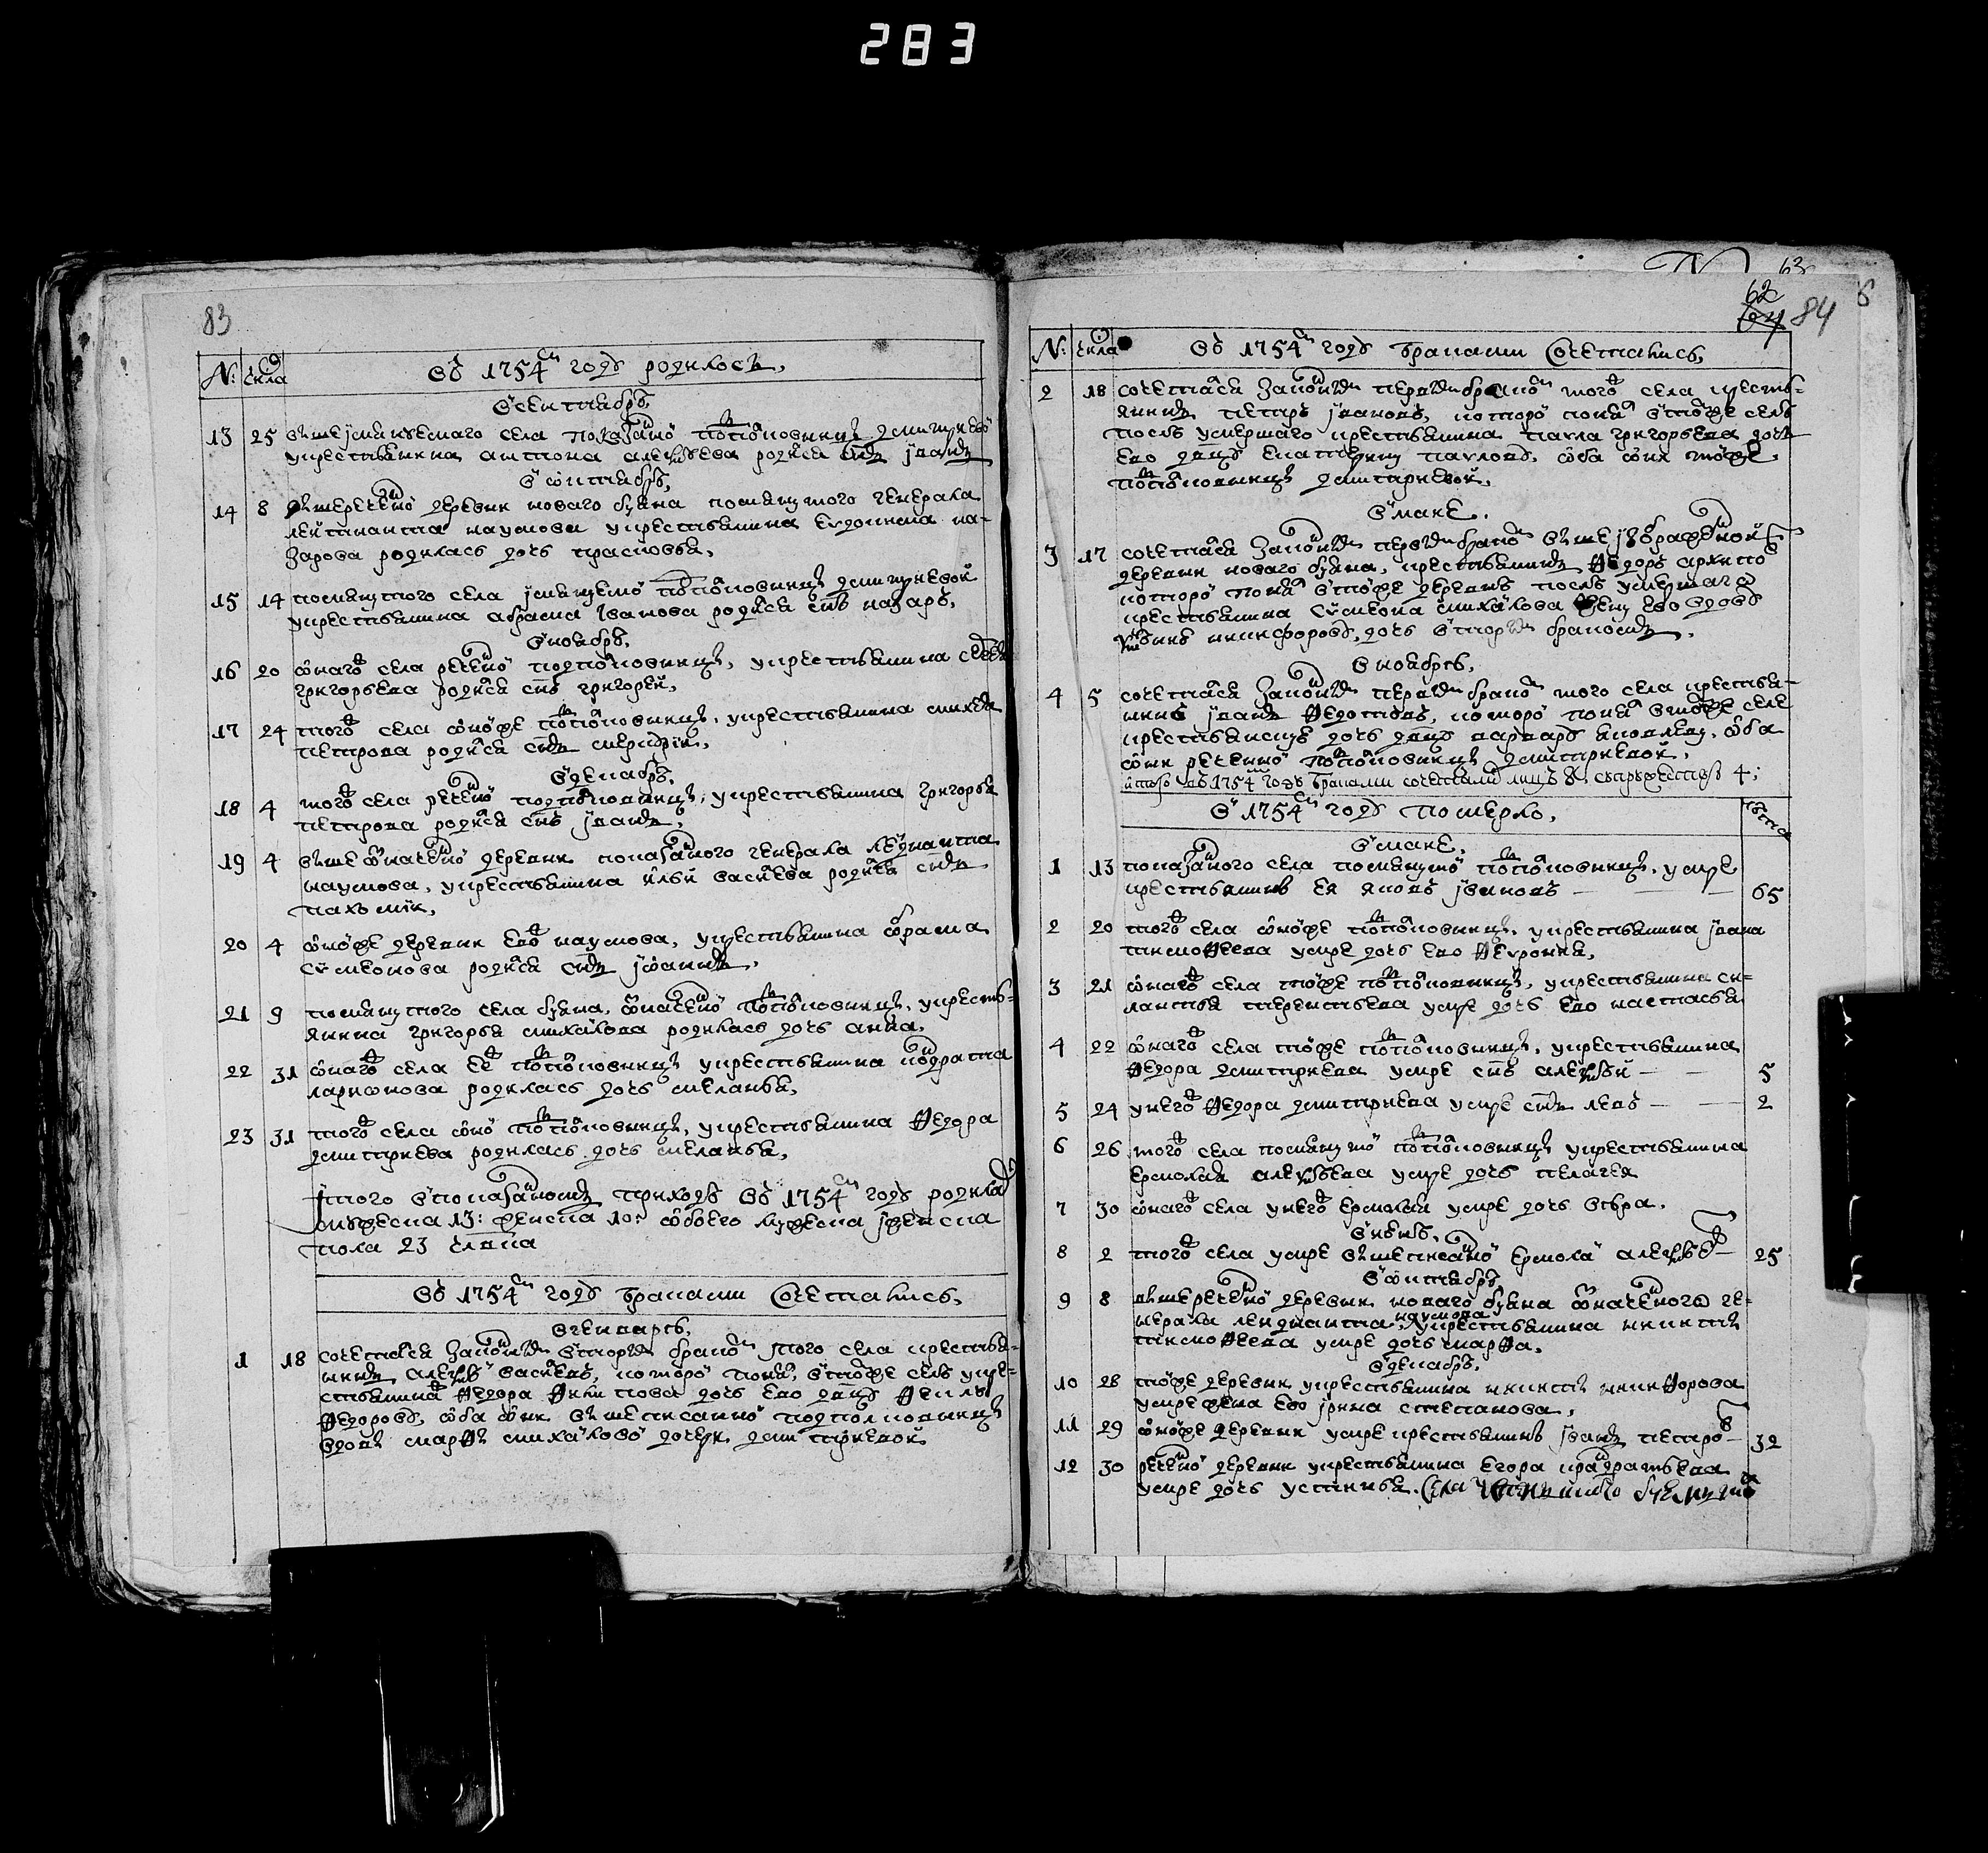 283
83
№: числа Въ 1754м году родилось,
В сентябрѣ,
13 25 вышеимянуемаго села показанной подполковницы дмитриевой
у крестьянина антона алеѯѣева родился сынъ иванъ
В октябрѣ,
14 8 вышереченной деревни новаго буяна помянутого генерала
лейтнанта наумова у крестьянина евдокима на-
зарова родилась дочь прасковья,
15 14 помянутого села имянуемой подполковницы дмитриевой
у крестьянина абрама иванова родился сынъ назаръ,
В ноябрѣ,
16 20 онагожъ села реченной подполковницы, у крестьянина
григорьева родился сынъ григорей,
17 24 тогожъ села оной же подполковницы, у крестьянина михея
петрова родился сынъ
В декабрѣ,
18 4 тогожъ села реченной подполковницы, у крестьянина григорья
петрова родился сынъ иванъ,
19 4 выше означенной деревни показанного генерала леднанта
наумова, у крестьянина ильи василева родился сынъ
пахомiй,
20 4 оной же деревни евожъ наумова, у крестьянина
сѵмеонова родился сынъ иоаннъ,
21 9 помянутого села буяна, означенной подполковницы, у кресть-
янина григорья михайлова родилась дочь анна,
22 31 онагожъ села еежъ подполковницы у крестьянина кондрата
ларионова родилась дочь меланья,
23 31 тогожъ села оной подполковницы, у крестьянина ѳедора
дмитриева родилась дочь меланья,
итого в показанномъ приходѣ въ 1754м году родилось
мужеска 13: женска 10: обоего мужеска и женска
пола 23 человека
Въ 1754м году браками сочетались,
В генварѣ,
1 18 сочетался законнымъ вторымъ бракомъ того села крестья-
нинъ алеѯѣй василевъ, которой понялъ в тоже селѣ у кре-
стьянина ѳедора дочь ево девицу
ѳедорову, оба они вышеписанной подполковницы
вдовы марѳы михайловой дочери дмитриевой
63
62 84
№: числа Въ 1754м году браками Сочетались,
2 18 сочетался законнымъ первымъ бракомъ тогожъ села кресть-
янинъ петръ ивановъ, которой понялъ в тоже селѣ
послѣ умершаго крестьянина павла григорьева дочь
ево девицу екатерину павлову, оба они тоже
подполковницы дмитриевой,
В маие,
3 17 сочетался законнымъ первымъ бракомъ вышеизображенной
деревни новаго буяна, крестьянинъ ѳедоръ архипо
которой понялъ в тоже деревнѣ послѣ умершаго
крестьянина сѵмеона михайлова жену ево вдову
никифорову, дочь вторымъ бракомъ,
В ноябрѣ,
4 5 сочетался законнымъ первымъ бракомъ того села крестья-
нинъ иванъ ѳедотовъ, которой понялъ в тоже селе
крестьянскую дочь девицу варвару яковлеву, оба
они реченной подполковницы дмитриевой,
итого въ 1754м году браками сочетанныхъ лицъ 8, супружествъ 4;
В 1754м году померло, лѣта
В маие,
1 13 показанного села помянутой подполковницы, умре
крестьянинъ ея яковъ ивановъ 65
2 20 тогожъ села оной же подполковницы, у крестьянина ивана
тимоѳеева умре дочь ево ѳеврониа,
3 21 онагожъ села тоже подполковницы, у крестьянина си-
лантья терентьева умре дочь ево настасья
4 22 онагожъ села тоже подполковницы, у крестьянина
ѳедора дмитриева умре сынъ алеѯѣй 5
5 24 у негожъ ѳедора дмитриева умре сынъ левъ 2
6 26 тогожъ села помянутой подполковницы у крестьянина
ермолая алеѯѣева умре дочь пелагея
7 30 онагожъ села у негожъ ермолая умре дочь вѣра,
В июнѣ,
8 2 тогожъ села умре вышеписанной ермолай алеѯѣевъ 25
В октябрѣ
9 8 вышереченной деревни новаго буяна означеного ге-
нерала лендианта наумова у крестьянина никиты
тимоѳеева умре дочь марѳа,
В декабрѣ,
10 28 тоже деревни у крестьянина никиты никиѳорова
умре жена ево ирина степанова,
11 29 оной же деревни умре крестьянинъ иванъ петровъ 32
12 30 реченной деревни у крестьянина егора кондратьева
умре дочь устинья. Села